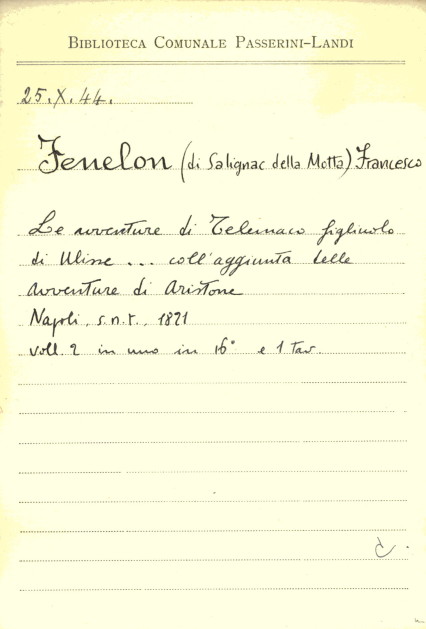 BIBLIOTECA COMUNALE PASSERINI-LANDI
25.X.44.
Fenelon (di Salignac della Motta) Francesco
Le avventure di Telemaco figliuolo
di Ulisse ... coll'aggiunta delle
avventure di Aristone
Napoli, s.n.t., 1821
voll. 2 in uno in 16° e 1 tav.